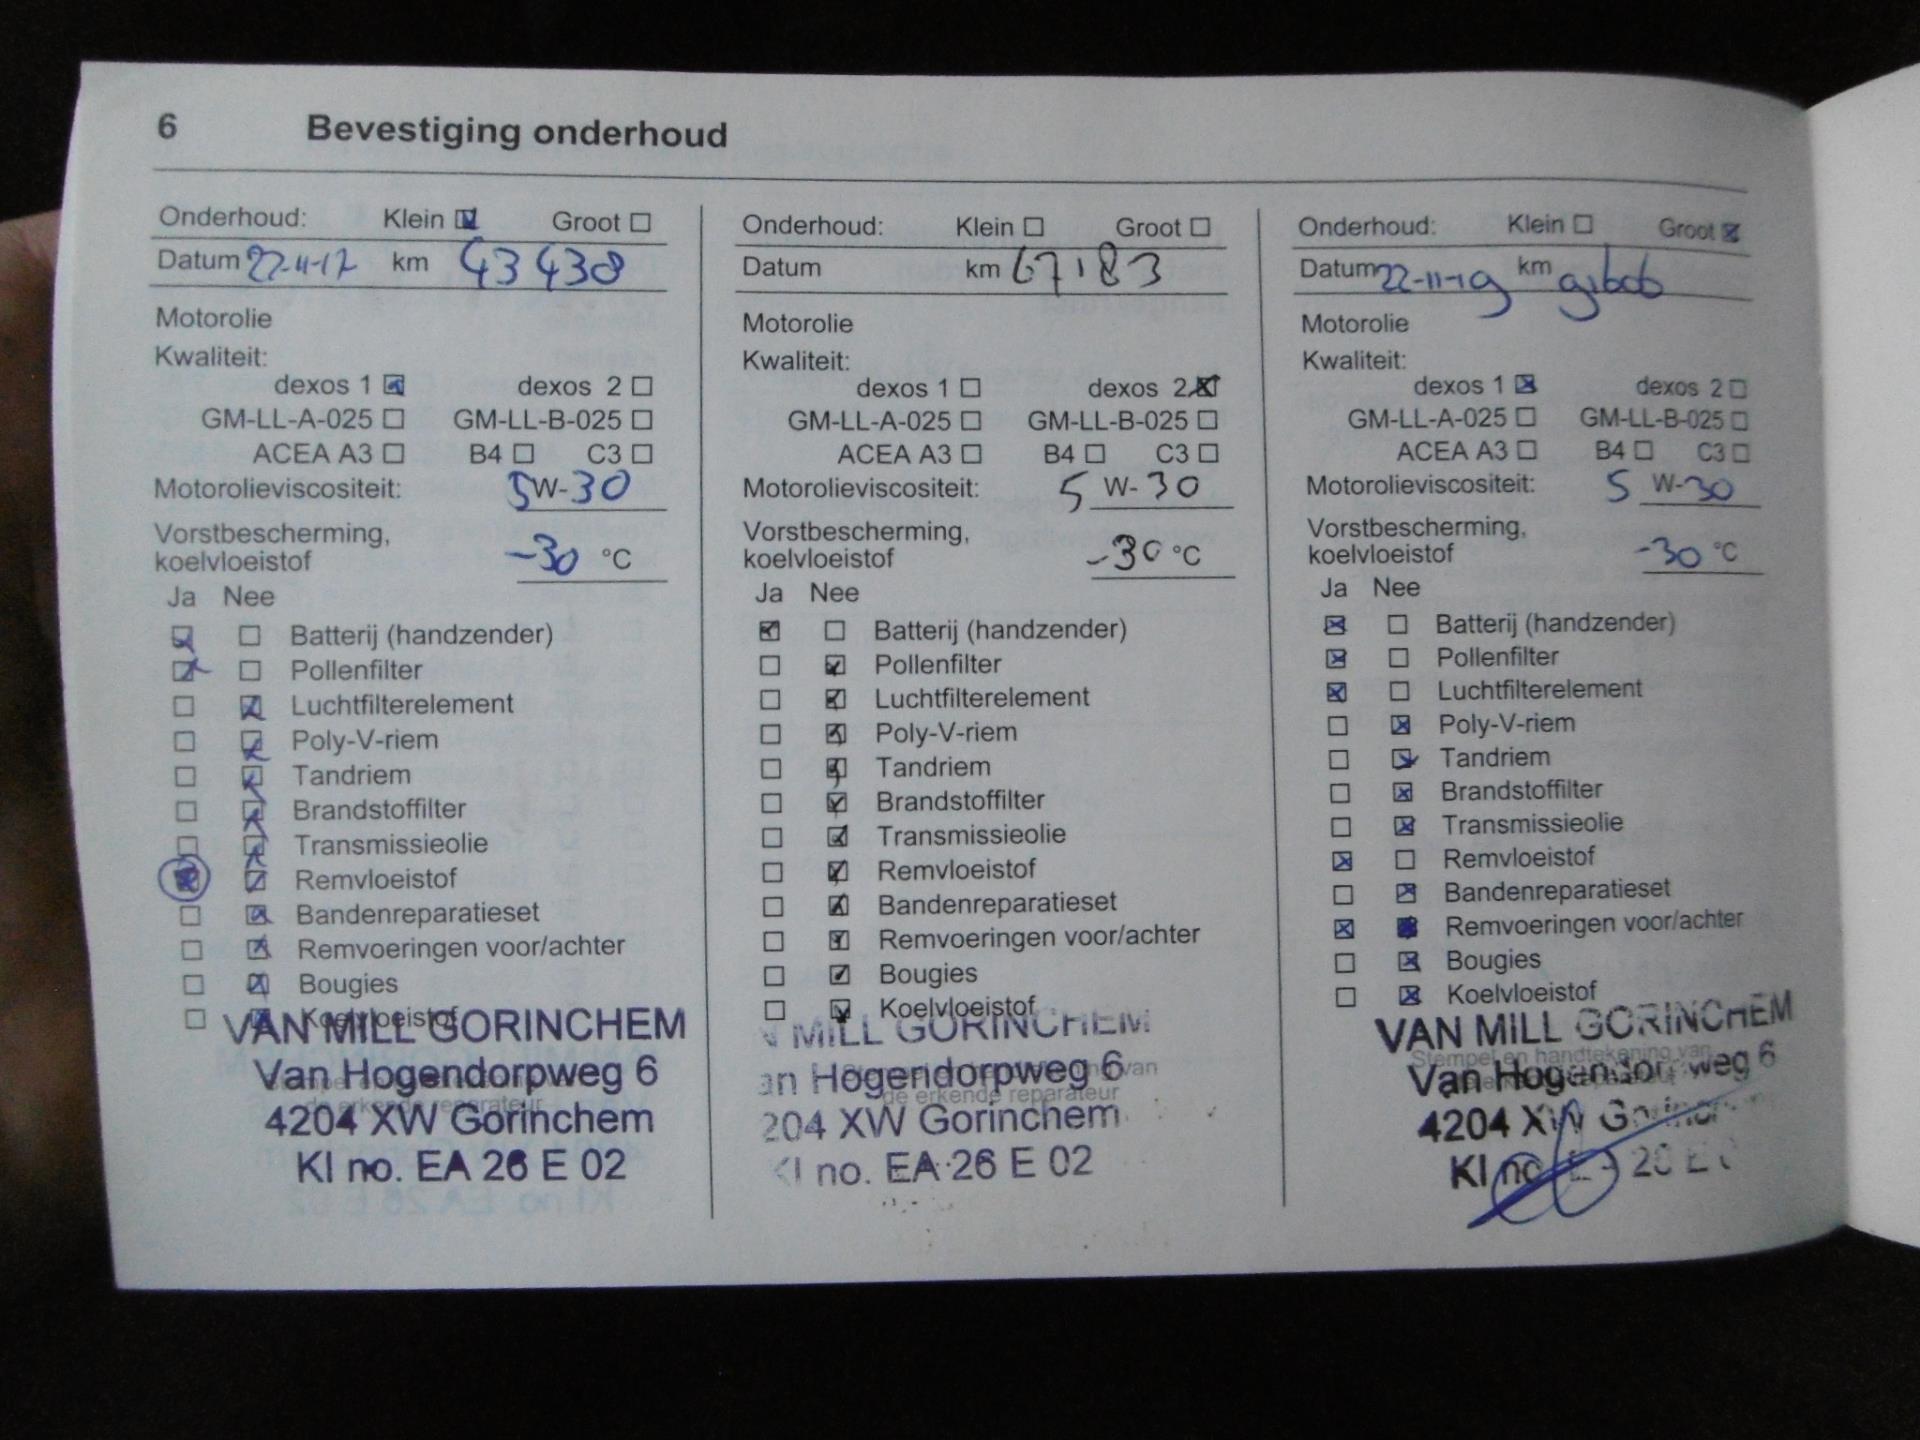 6 Bevestiging onderhoud
Onderhoud: Klein Groot
Datum 22-11-17 km 43 438
Motorolie
Kwaliteit:
dexos 1 dexos 2
GM-LL-A-025 GM-LL-B-025
ACEA A3 B4 C3
Motorolieviscositeit: 5W-30
Vorstbescherming,
koelvloeistof -30 °C
Ja Nee
Batterij (handzender)
Pollenfilter
Luchtfilterelement
Poly-V-riem
Tandriem
Brandstoffilter
Transmissieolie
Remvloeistof
Bandenreparatieset
Remvoeringen voor/achter
Bougies
Koelvloeistof
VAN MILL GORINCHEM
Van Hogendorpweg 6
de erkende reparateur
4204 XW Gorinchem
KI no. EA 26 E 02
Onderhoud: Klein Groot
Datum km 67183
Motorolie
Kwaliteit:
dexos 1 dexos 2
GM-LL-A-025 GM-LL-B-025
ACEA A3 B4 C3
Motorolieviscositeit: 5 W-30
Vorstbescherming,
koelvloeistof -30 °C
Ja Nee
Batterij (handzender)
Pollenfilter
Luchtfilterelement
Poly-V-riem
Tandriem
Brandstoffilter
Transmissieolie
Remvloeistof
Bandenreparatieset
Remvoeringen voor/achter
Bougies
Koelvloeistof
N MILL GORINCHEM
an Hogendorpweg 6
de erkende reparateur
204 XW Gorinchem
KI no. EA 26 E 02
Onderhoud: Klein Groot
Datum 22-11-19 km
Motorolie
Kwaliteit:
dexos 1 dexos 2
GM-LL-A-025 GM-LL-B-025
ACEA A3 B4 C3
Motorolieviscositeit: 5 W-30
Vorstbescherming,
koelvloeistof -30 °C
Ja Nee
Batterij (handzender)
Pollenfilter
Luchtfilterelement
Poly-V-riem
Tandriem
Brandstoffilter
Transmissieolie
Remvloeistof
Bandenreparatieset
Remvoeringen voor/achter
Bougies
Koelvloeistof
VAN MILL GORINCHEM
Stempel en handtekening van
Van Hogendorpweg 6
4204 XW
KI no.